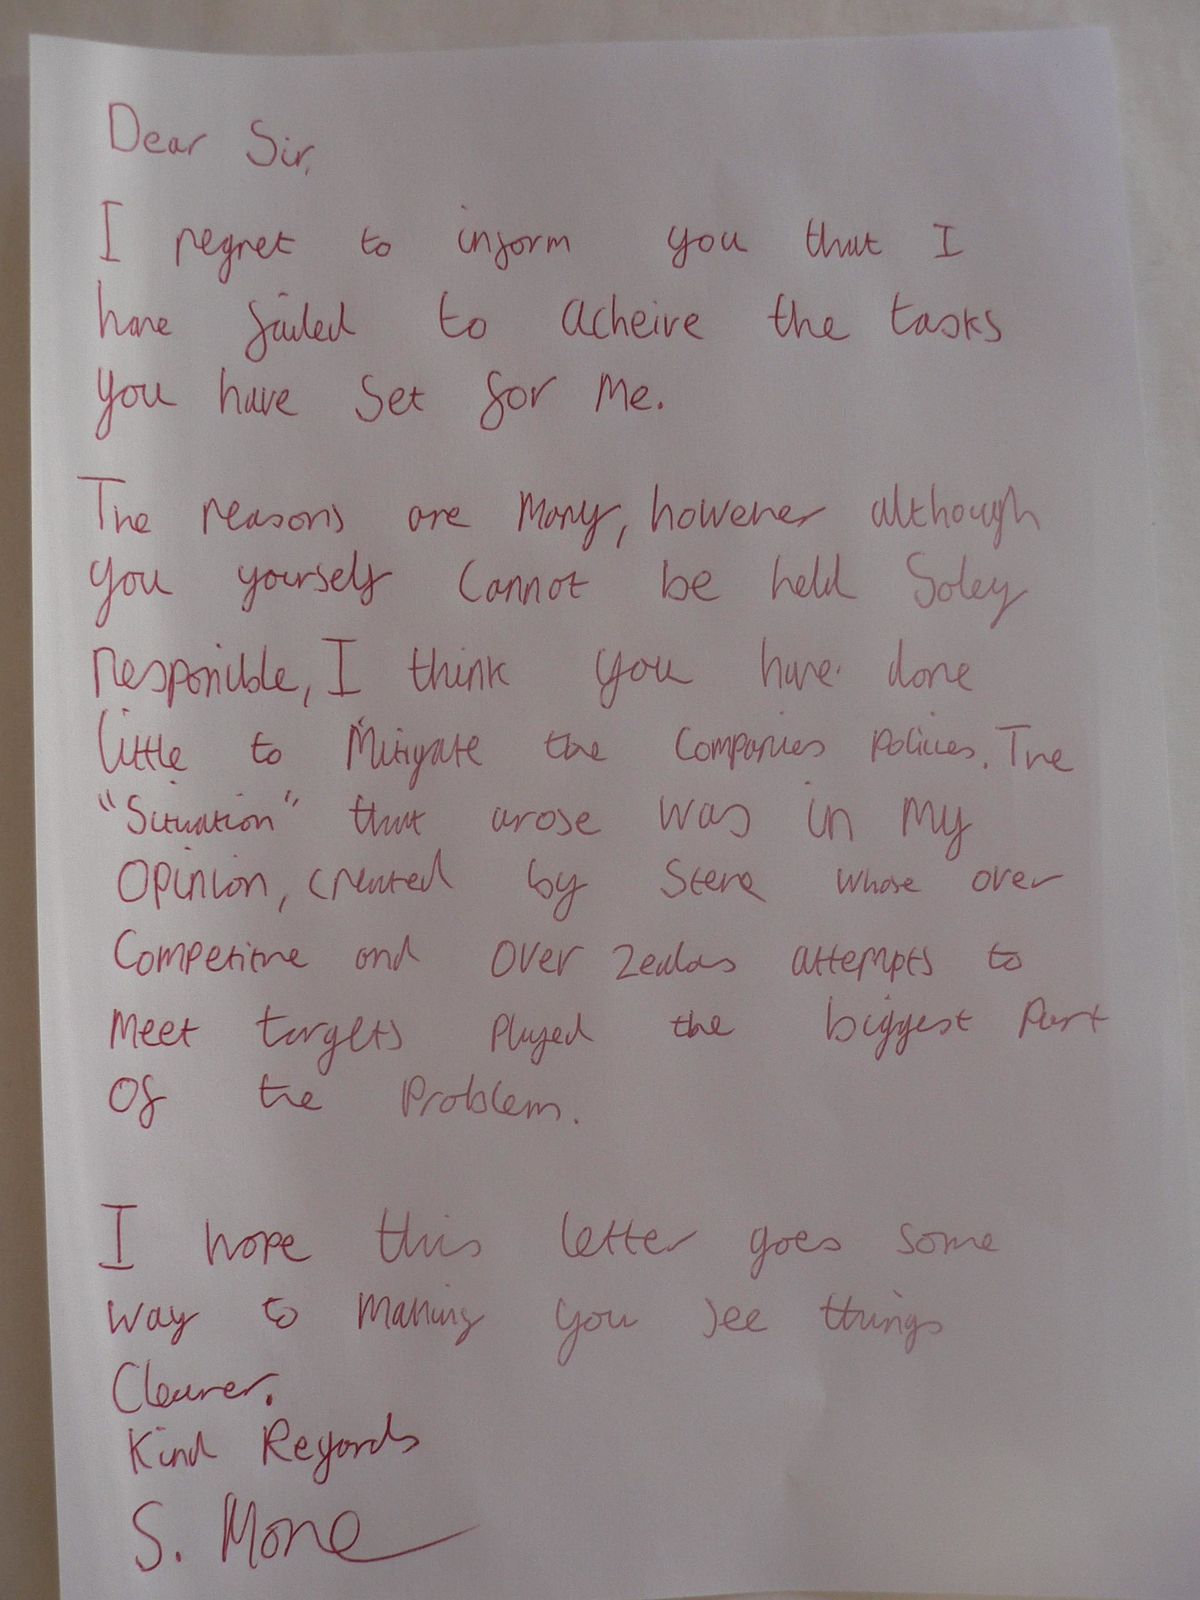 Dear Sir,
I regret to inform you that I
have failed to acheive the tasks
you have set for me.
The reasons are many, however although
you yourself cannot be held soley
responsible, I think you have done
little to mitigate the companies policies. The
"Situation" that arose was in my
opinion, created by Steve whose over
competitive and over zealas attempts to
meet targets played the biggest part
of the problem.
I hope this letter goes some
way to making you see things
clearer.
Kind Regards
S. Mone